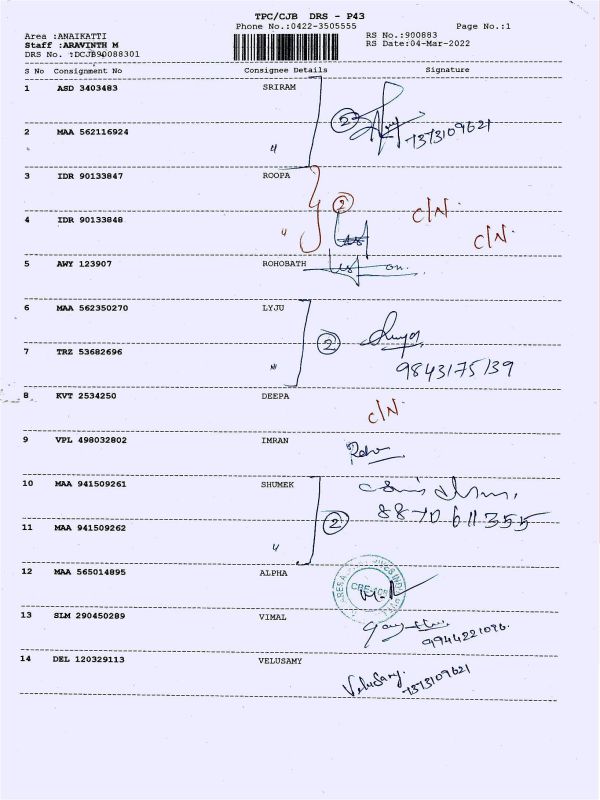 TPC/CJB DRS - P43
Phone No.:0422-3505555 Page No.:1
Area :ANAIKATTI RS No.:900883
Staff :ARAVINTH M RS Date:04-Mar-2022
DRS No. :DCJB90088301
S No Consignment No Consignee Details Signature
1 ASD 3403483 SRIRAM
2
2 MAA 562116924 "
7373109621
3 IDR 90133847 ROOPA
2 C/N.
4 IDR 90133848 "
C/N.
5 AWY 123907 ROHOBATH
6 MAA 562350270 LYJU
2
7 TRZ 53682696 "
9843175139
8 KVT 2534250 DEEPA
C/N.
9 VPL 498032802 IMRAN
10 MAA 941509261 SHUMEK
8870611355
2
11 MAA 941509262 "
12 MAA 565014895 ALPHA
13 SLM 290450289 VIMAL
9944221096.
14 DEL 120329113 VELUSAMY
Velusamy.
7373109621